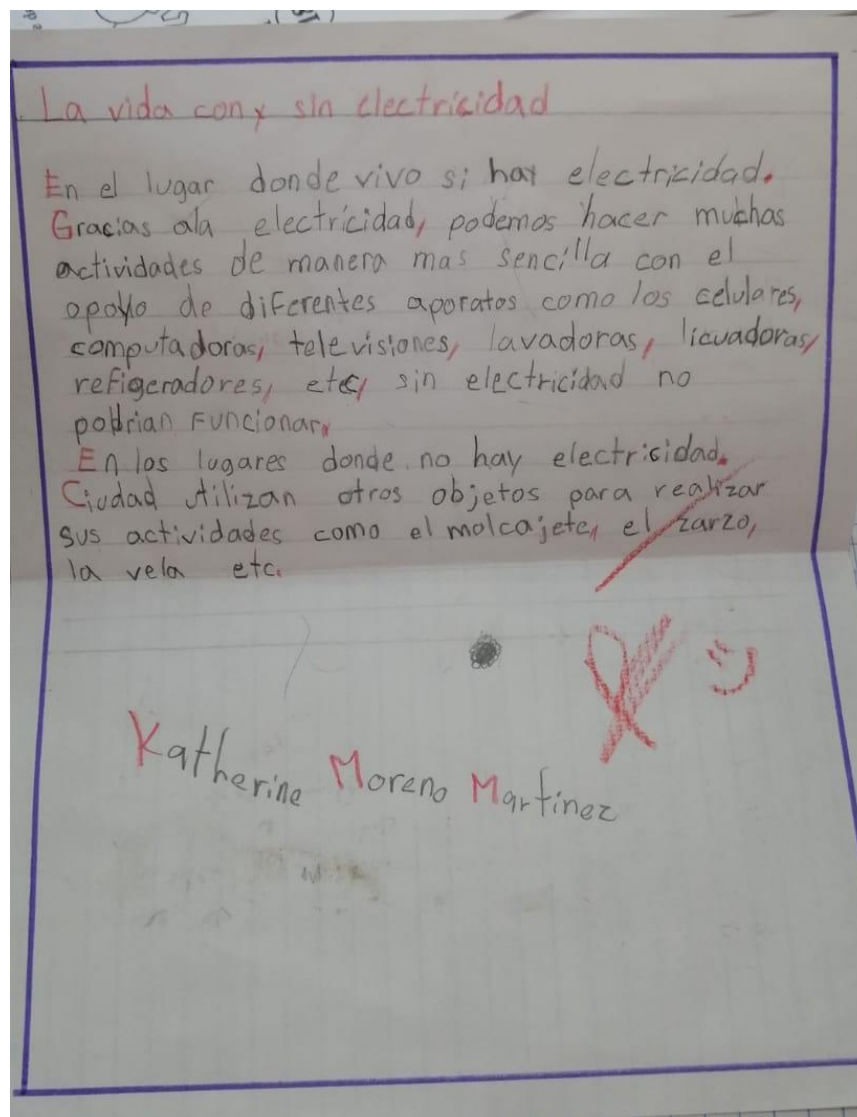 La vida con y sin electricidad
En el lugar donde vivo si hay electricidad.
Gracias ala electricidad, podemos hacer muchas
actividades de manera mas sencilla con el
apoyo de diferentes aparatos como los celulares,
computadoras, televisiones, lavadoras, licuadoras,
refigeradores, etc, sin electricidad no
podrian Funcionar.
En los lugares donde no hay electricidad.
Ciudad utilizan otros objetos para realizar
sus actividades como el molcajete, el zarzo,
la vela etc.
Katherine Moreno Martinez